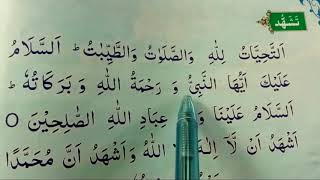 تَشَهُّد
اَلتَّحِيَّاتُ لِلّٰهِ وَالصَّلَوٰتُ وَالطَّيِّبٰتُ ط اَلسَّلَامُ
عَلَيْكَ اَيُّهَا النَّبِيُّ وَ رَحْمَةُ اللّٰهِ وَ بَرَكَاتُهٗ ط
اَلسَّلَامُ عَلَيْنَا وَ عِبَادِ اللّٰهِ الصّٰلِحِيْنَ O
اَشْهَدُ اَنْ لَّآ اِلٰهَ اللّٰهُ وَاَشْهَدُ اَنَّ مُحَمَّدًا